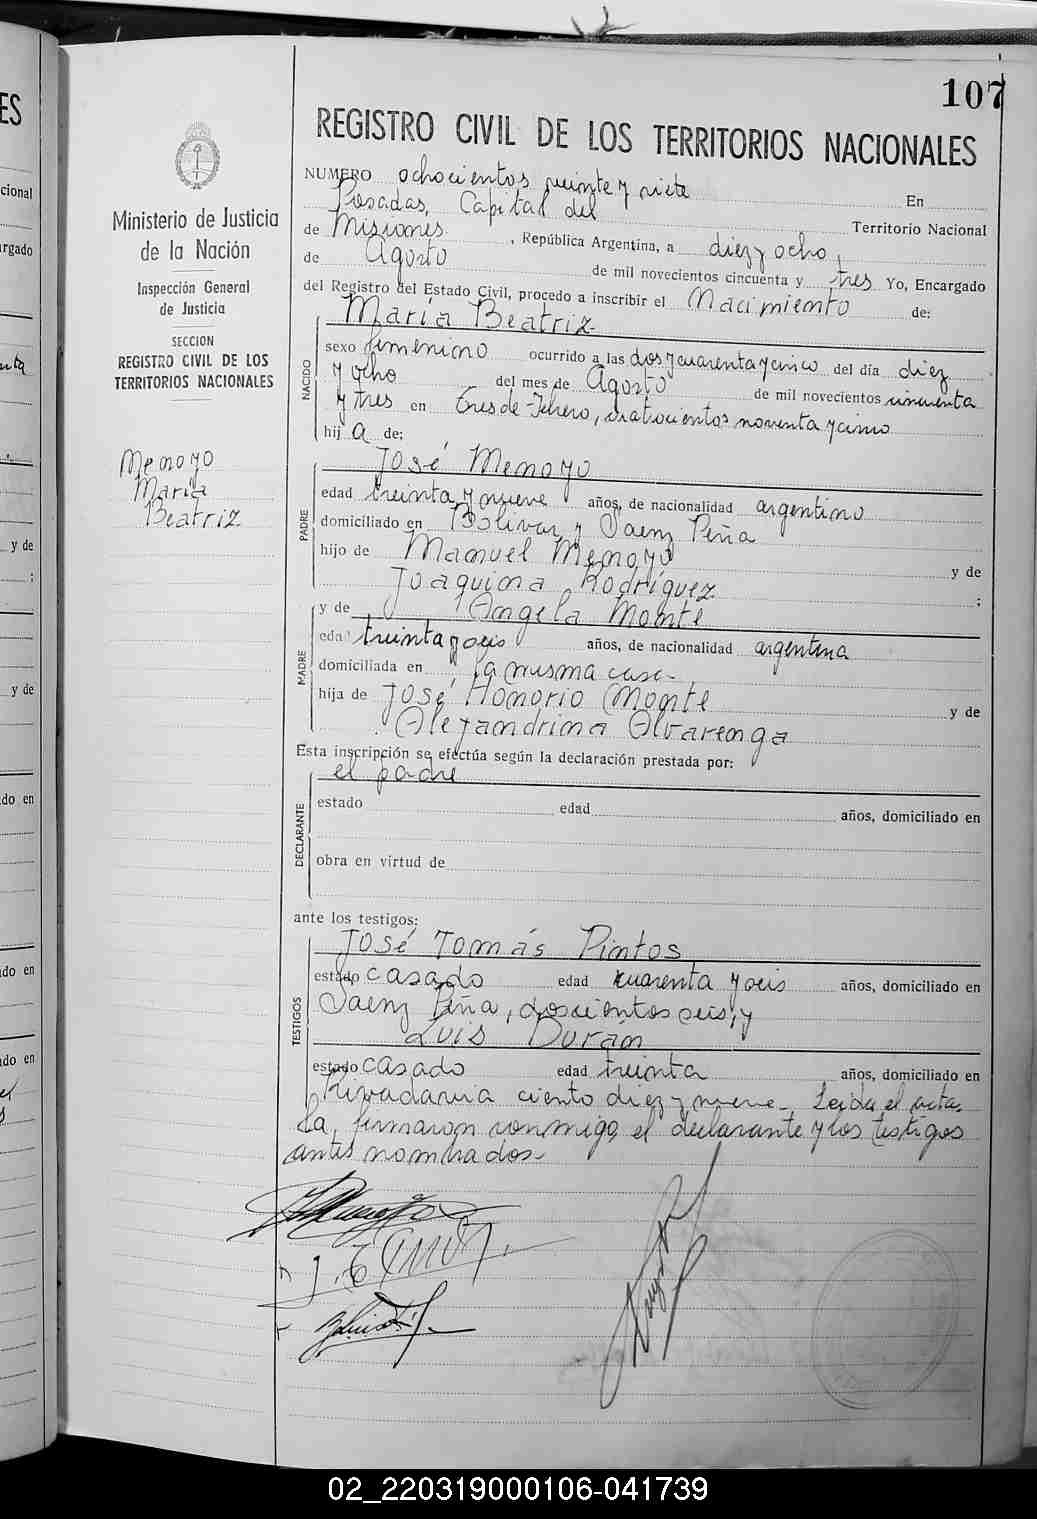 ES
cional
rgado
nta
y de
;
y de
do en
do en
do en
107
REGISTRO CIVIL DE LOS TERRITORIOS NACIONALES
Ministerio de Justicia
de la Nación
Inspección General
de Justicia
SECCION
REGISTRO CIVIL DE LOS
TERRITORIOS NACIONALES
Menoyo
María
Beatriz
NUMERO ochocientos veinte y siete En
Posadas, Capital del Territorio Nacional
de Misiones, República Argentina, a diez y ocho,
de Agosto de mil novecientos cincuenta y tres Yo, Encargado
del Registro del Estado Civil, procedo a inscribir el Nacimiento de:
María Beatriz
NACIDO
sexo femenino ocurrido a las dos y cuarenta y cinco del día diez
y ocho del mes de Agosto de mil novecientos cincuenta
y tres en Tres de Febrero, cuatrocientos noventa y cinco
hij a de:
José Menoyo
PADRE
edad treinta y nueve años, de nacionalidad argentino
domiciliado en Bolivar y Saenz Peña
hijo de Manuel Menoyo y de
Joaquina Rodríguez ;
y de Angela Monte
MADRE
edad treinta y seis años, de nacionalidad argentina
domiciliada en la misma casa
hija de José Honorio Monte y de
Alejandrina Alvarenga
Esta inscripción se efectúa según la declaración prestada por:
el padre
DECLARANTE
estado edad años, domiciliado en
obra en virtud de
ante los testigos:
José Tomás Pintos
TESTIGOS
estado casado edad cuarenta y seis años, domiciliado en
Saenz Peña, doscientos seis, y
Luis Durán
estado casado edad treinta años, domiciliado en
Rivadavia ciento diez y nueve. Leída el acta,
la firmaron conmigo, el declarante y los testigos
antes nombrados.
02_220319000106-041739